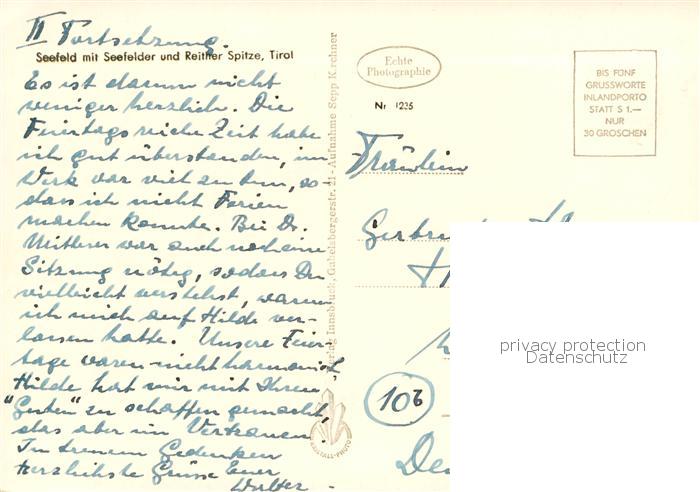 II Fortsetzung.
Seefeld mit Seefelder und Reither Spitze, Tirol
Es ist darum nicht
weniger herzlich. Die
Feiertags reiche Zeit habe
ich gut überstanden, im
Werk war viel zu tun, so
dass ich nicht Ferien
machen konnte. Bei Dr.
Mitterer war auch noch eine
Sitzung nötig, sodass Du
vielleicht verstehst, warum
ich mich auf Hilde ver-
lassen hatte. Unsere Feier-
tage waren nicht harmonisch,
Hilde hat mir mit Ihrem
"Gusten" zu schaffen gemacht,
das aber im Vertrauen!
In treuem Gedenken
herzlichste Grüsse Euer
Walter
Verlag Innsbruck, Gabelsbergerstr. 21 - Aufnahme Sepp Kirchner
KRISTALL-PHOTO
Echte
Photographie
Nr 1235
BIS FÜNF
GRUSSWORTE
INLANDPORTO
STATT S 1.—
NUR
30 GROSCHEN
Fräulein
privacy protection
Datenschutz